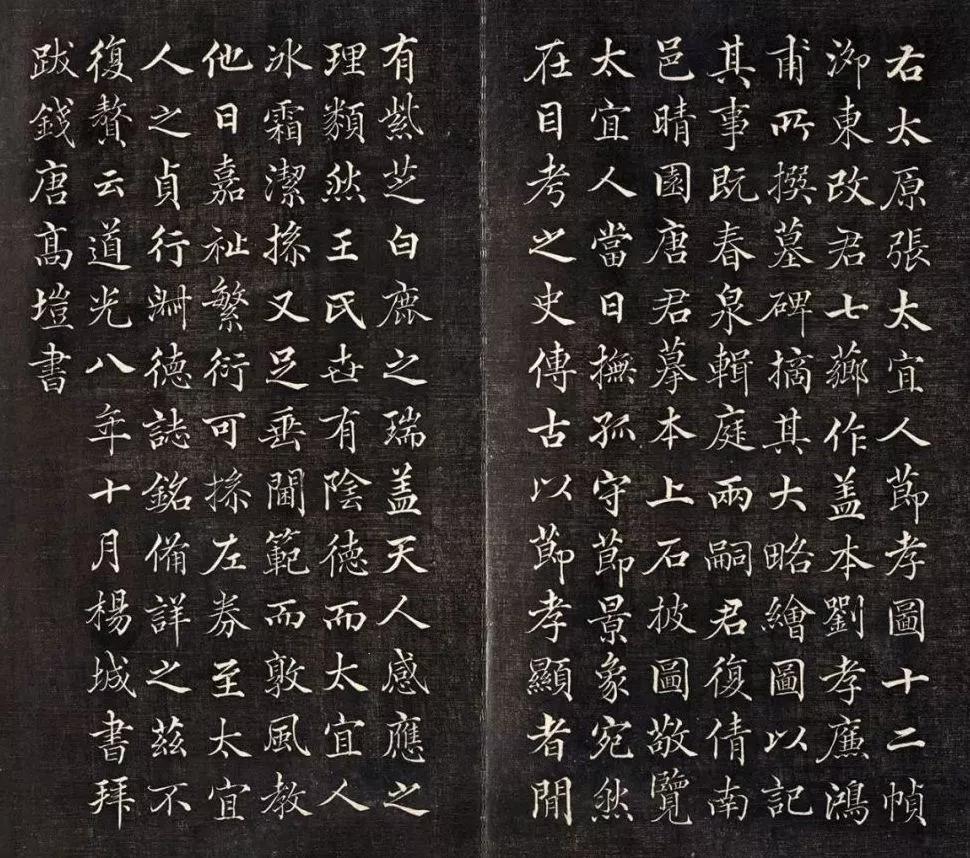 右太原張太宜人節孝圖十二幀
泖東改君七薌作蓋本劉孝廉鴻
甫所撰墓碑摘其大略繪圖以記
其事既春泉輯庭兩嗣君復倩南
邑晴園唐君摹本上石披圖敬覽
太宜人當日撫孤守節景象宛然
在目考之史傳古以節孝顯者閒
有紫芝白鹿之瑞蓋天人感應之
理類然王氏世有陰德而太宜人
冰霜潔操又足垂閫範而敦風教
他日嘉祉繁衍可操左券至太宜
人之貞行淵德誌銘備詳之茲不
復贅云道光八年十月楊城書拜
跋錢唐高塏書